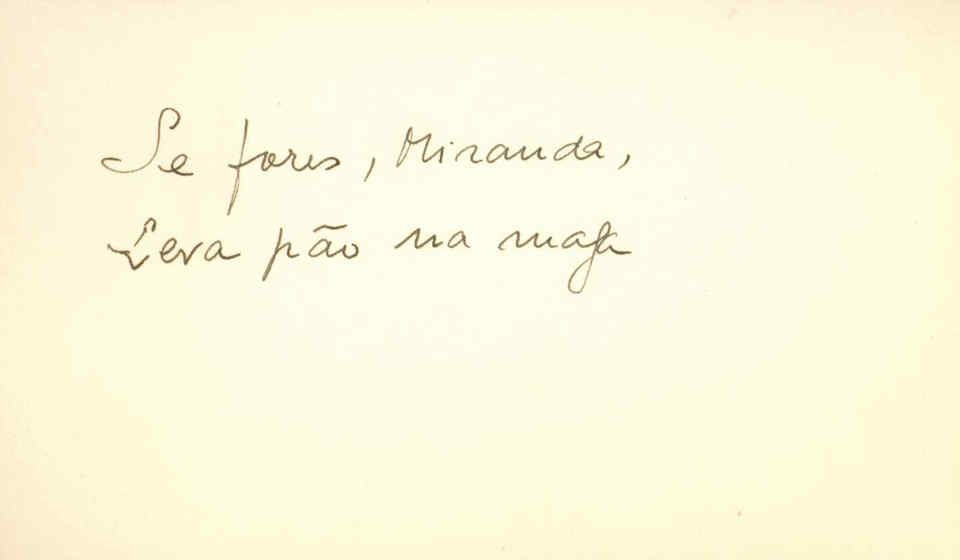 Se fores, Miranda,
Leva pão na